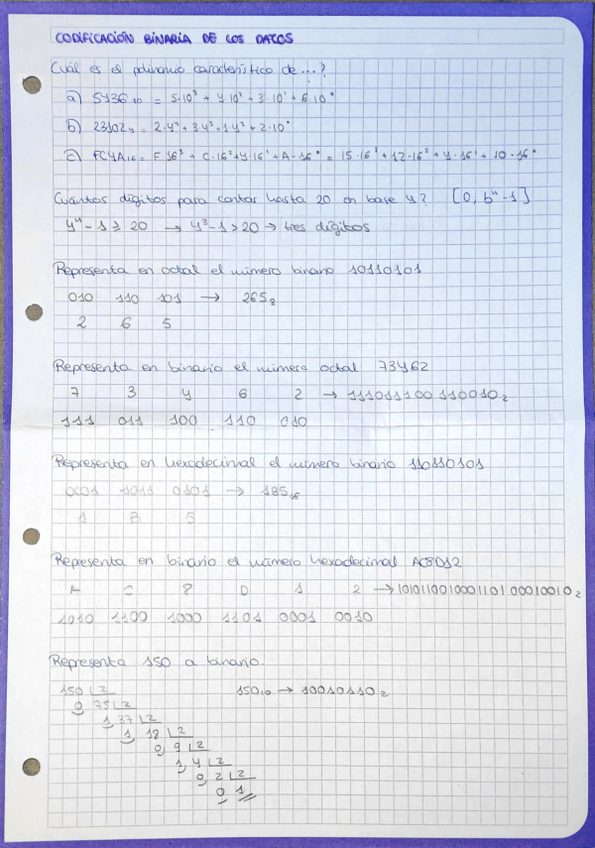 CODIFICACIÓN BINARIA DE LOS DATOS
Cuál es el polinomio característico de...?
a) 5436₁₀ = 5·10³ + 4·10² + 3·10¹ + 6·10⁰
b) 23102₄ = 2·4⁴ + 3·4³ + 1·4² + 2·10⁰
c) FC4A₁₆ = F·16³ + C·16² + 4·16¹ + A·16⁰ = 15·16³ + 12·16² + 4·16¹ + 10·16⁰
Cuántos dígitos para contar hasta 20 en base 4? [0, bⁿ-1]
4ⁿ - 1 ≥ 20 → 4³ - 1 > 20 → tres dígitos
Representa en octal el número binario 10110101
010 110 101 → 265₈
2 6 5
Representa en binario el número octal 73462
7 3 4 6 2 → 111011100 110010₂
111 011 100 110 010
Representa en hexadecimal el número binario 110110101
0001 1011 0101 → 1B5₁₆
1 B 5
Representa en binario el número hexadecimal AC8D12
A C 8 D 1 2 → 101011001000110100010010₂
1010 1100 1000 1101 0001 0010
Representa 150 a binario.
150 2 150₁₀ → 10010110₂
0 75 2
1 37 2
1 18 2
0 9 2
1 4 2
0 2 2
0 1